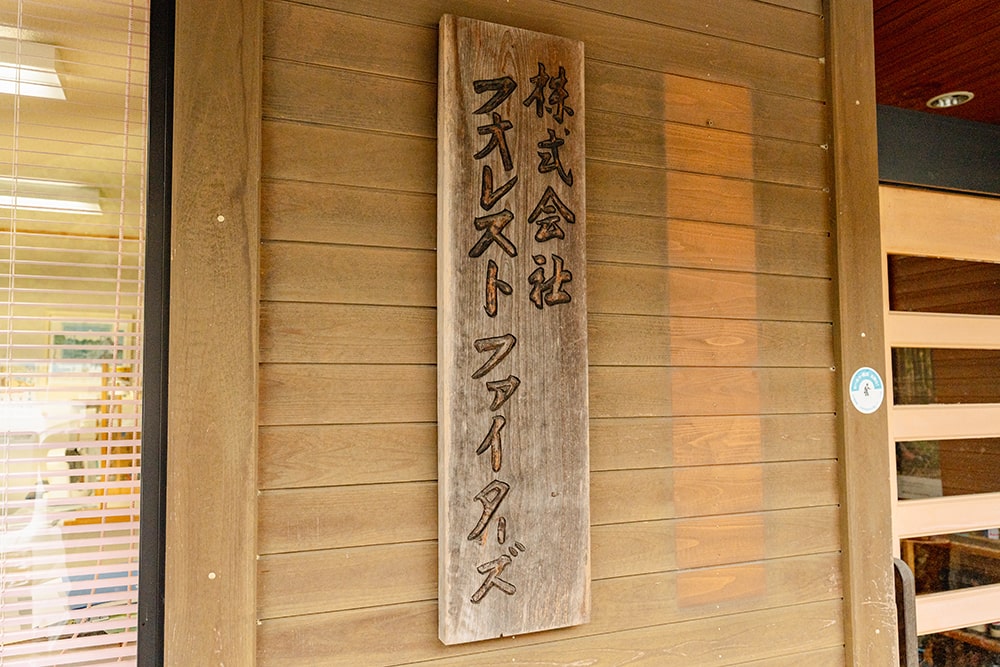 株式会社
フォレストファイターズ